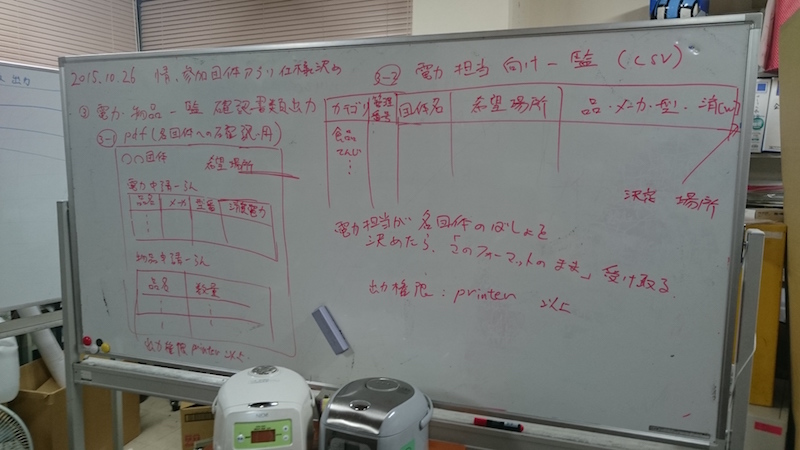 2015.10.26 情、参加団体アプリ仕様決め
③ 電力・物品一覧 確認書類出力
③-1 pdf (各団体への確認用)
○○団体 希望場所
電力申請一らん
品名 メーカ 型番 消費電力
物品申請一らん
品名 数量
出力権限 printer 以上
③-2 電力担当向け一覧 (CSV)
カテゴリ 管理番号 団体名 希望場所 品・メーカ・型・消[W]
食品
てんじ
決定 場所
電力担当が各団体のばしょを
決めたら、「このフォーマットのまま」受け取る
出力権限: printer 以上